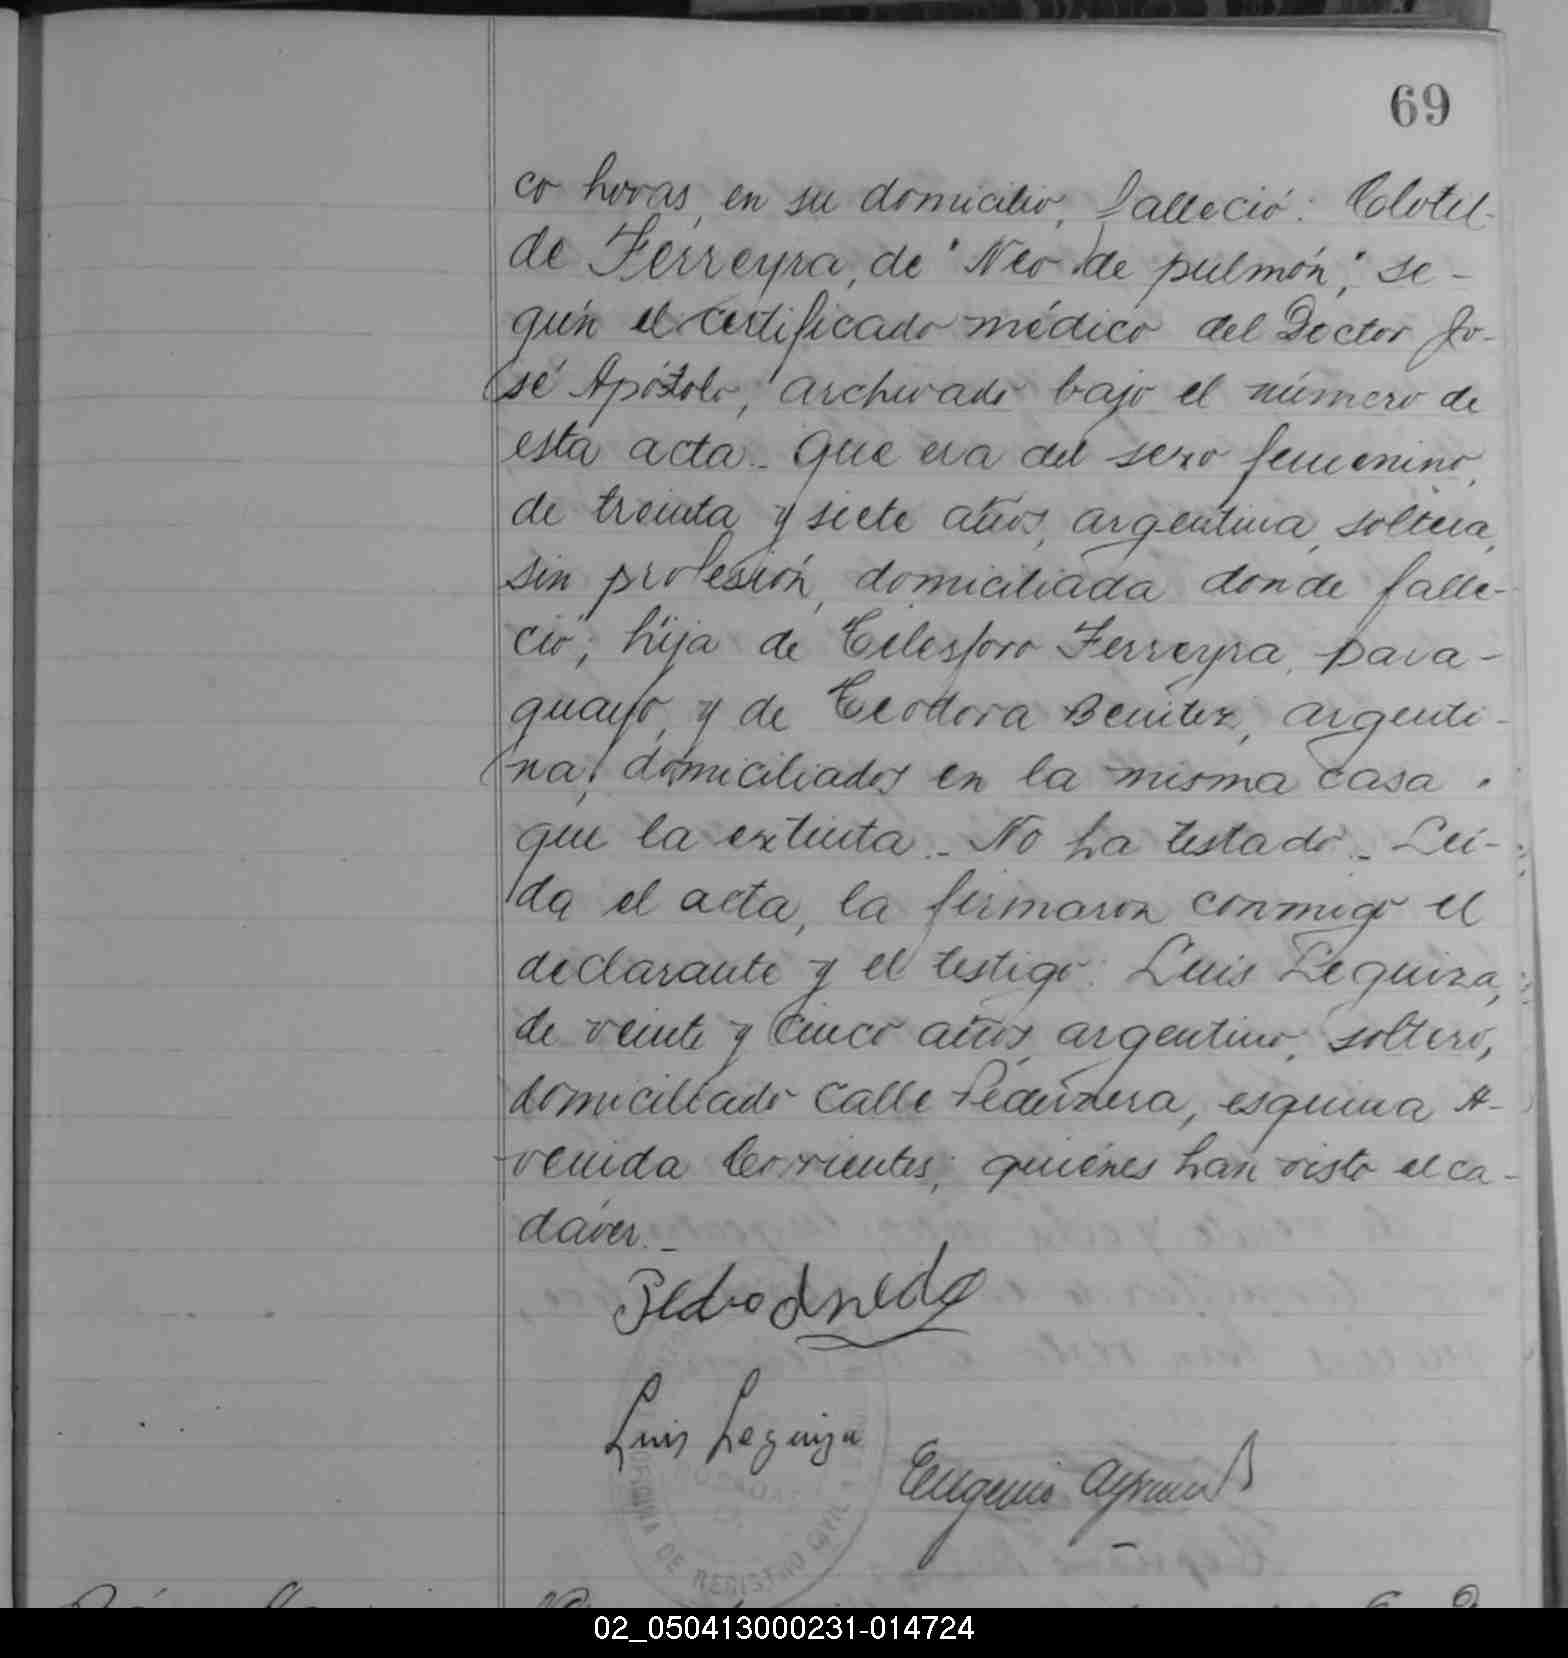 69
co horas, en su domicilio, falleció: Clotil-
de Ferreyra, de "Neo de pulmón," se-
gún el certificado médico del Doctor Jo-
sé Apóstolo, archivado bajo el número de
esta acta.- Que era del sexo femenino,
de treinta y siete años, argentina, soltera,
sin profesión, domiciliada donde falle-
ció; hija de Telesforo Ferreyra, para-
guayo, y de Teodora Benitez, argenti-
na, domiciliados en la misma casa
que la extinta.- No ha testado.- Leí-
da el acta, la firmaron conmigo el
declarante y el testigo: Luis Leguiza,
de veinte y cinco años, argentino, soltero,
domiciliado calle Pedernera, esquina A-
venida Corrientes; quiénes han visto el ca-
dáver.-
Pedro
Luis Leguiza
Eugenio
OFICINA DE REGISTRO CIVIL
02_050413000231-014724